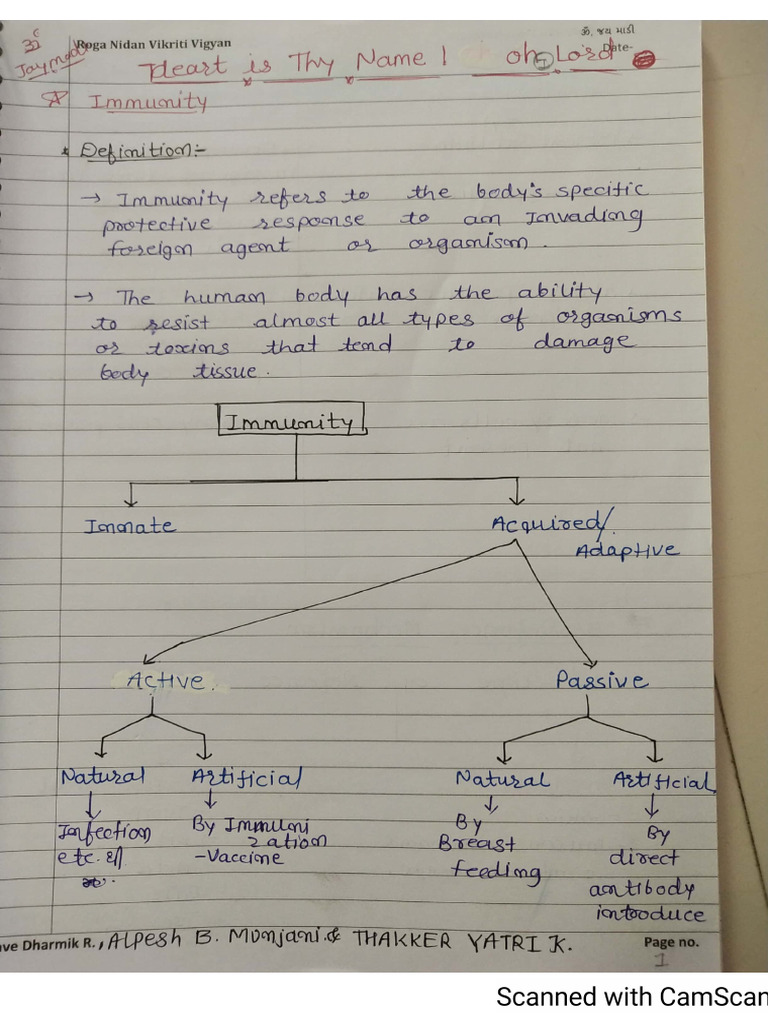 ૐ
Roga Nidan Vikriti Vigyan
ૐ, જય માડી
Date-
Heart is Thy Name! oh Lord
Immunity
* Definition:-
→ Immunity refers to the body's specific
protective response to an Invading
foreign agent or organism.
→ The human body has the ability
to resist almost all types of organisms
or toxins that tend to damage
body tissue.
Immunity
Innate
Acquired/
Adaptive
Active.
Passive
Natural
Artificial
Natural
Artificial
Infection
etc. थी
By Immuni
zation
-Vaccine
By
Breast
feeding
By
direct
antibody
introduce
ave Dharmik R., Alpesh B. Munjani. & THAKKER YATRI K.
Page no.
1
Scanned with CamScan